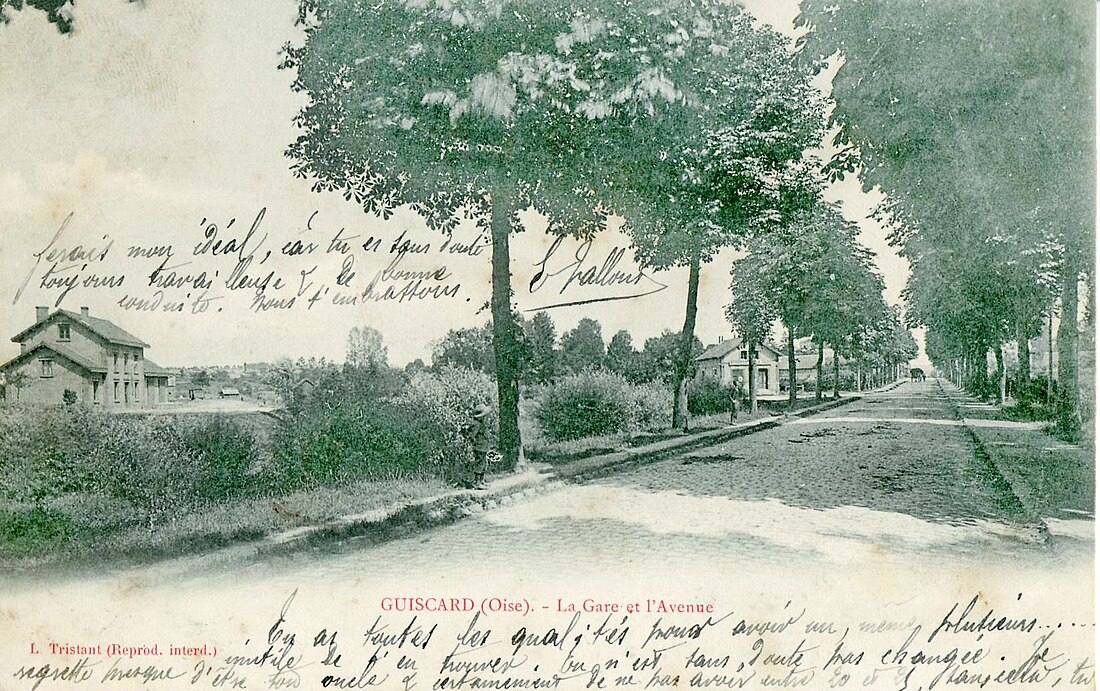 ferais mon idéal, car tu es sans doute
toujours travailleuse & de bonne
conduite. Nous t'embrassons.
GUISCARD (Oise). - La Gare et l'Avenue
L. Tristant (Reprod. interd.)
Tu as toutes les qualités pour avoir un, même plusieurs......
inutile de t'en trouver. Tu n'es, sans doute pas changée. Je
regrette presque d'être ton oncle & certainement de ne pas avoir entre 20 et tu